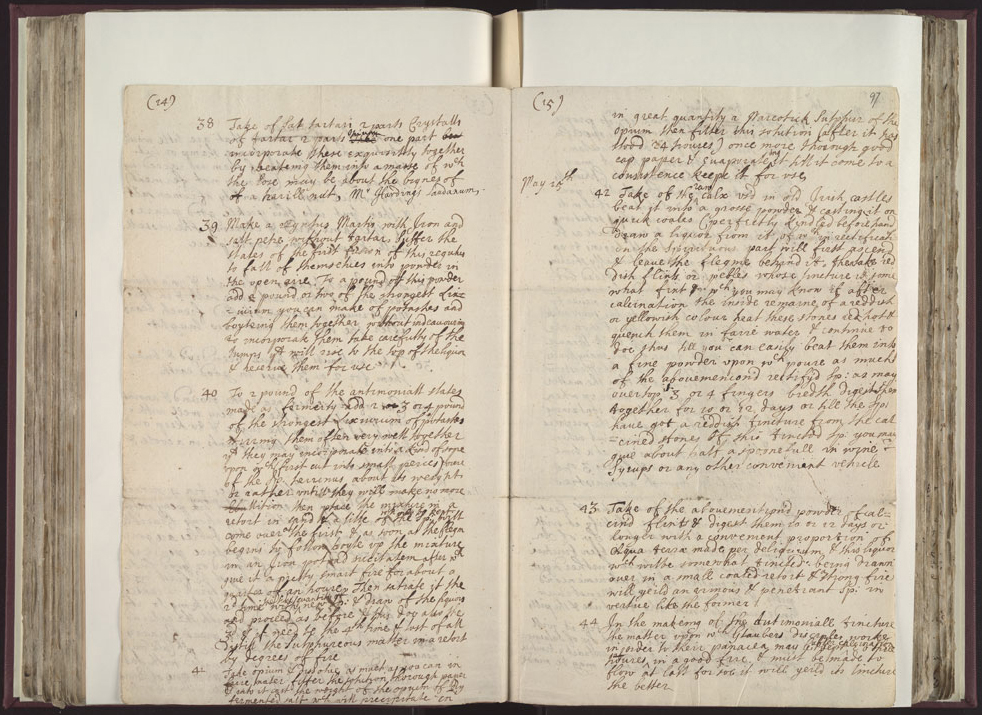 (24)
38 Take of salt tartari 2 parts Crystalls
of tartar 2 parts opium one part
incorporate these exquisitly together
by beateing them into a masse of wch
the dose may be about the bignes of
of a hasill nut, Mr Hardings Laudanum,
39 Make a Regulus Martis with Iron and
salt peter without tartar, suffer the
of the first fusion of this regulus
to fall of themselves into pouder in
the open aire. To a pound of this pouder
add a pound or two of the strongest
you can make of potashes and
boyleing them together without indeavouring
to incorporate them take carefully of the
yt will rise to the top of the liquor
& reserve them for use
40 To 2 pound of the antimoniall
made as formerly add 2 or 3 or 4 pound
of the strongest lixivium of potashes
stirring them often very well together
yt they may incorporate into a kind of sope
upon wch first cut into small peices
of the sp: about its weight
or rather untill they will make no more
then place the mixture in a
retort in sand & a little of the
come over the first & as soon as the
begins to follow boyle up the mixture
in an Iron pot ad siccitatem after wch
give it a pretty smart fire for about a
quarter of an houre, then satiate it the
2d time with new & draw of the liquor
and proceed as before & this doe also the
3d & if need be the 4th time & last of all
distill the sulphureous matter in a retort
by degrees of fire
41 Take opium & dissolve as much as you can in
faire water filter the solution thorough paper
& into it cast the weight of the opium of
fermented salt wch will precipitate in
(25)
97
in great quantity a Narcotick Sulphur of the
opium then filter this solution (after it has
stood 24 houres) once more thorough good
cap paper & evaporateing till it come to a
consistence keepe it for use
May 24th
42 Take of the calx usd in old Irish castles
beat it into a grosse powder & casting it on
quick coales (perfectly kindled beforehand
draw a liquor from it, of wch in rectifieing
the spirituous part will first ascend
& leave the flegme behind it, then take red
dish flints or pebles whose tincture is some
what faint wch you may know if after
calcination the inside remaine of a reddish
or yellowish colour heat these stones red hot &
quench them in faire water & continue to
doe thus till you can easily beat them into
a fine powder upon wch poure as much
of the abovementiond rectifyd sp: as may
overtop 3 or 4 fingers breadth digest them
together for 10 or 12 days or till the sp:
have got a reddish tincture from the cal
=cined stones Of this tincted sp: you may
give about half a spoonefull in wine,
Syrups or any other convenient vehicle
43 Take of the abovementiond powder of cal=
cind flints & digest them 10 or 12 days or
longer with a convenient proportion of
Aqua terrae made per deliquium, & this liquor
wch wilbe somewhat tincted being drawn
over in a small coated retort & strong fire
will yeild an vinous & penetrant Sp: in
vertue like the former
44 In the makeing of the Antimoniall tincture
the matter upon wch Glaubers disciples worke
in order to their panacea may
houres, in a good fire, & must be made to
flow at last for so it will yeild its tincture
the better